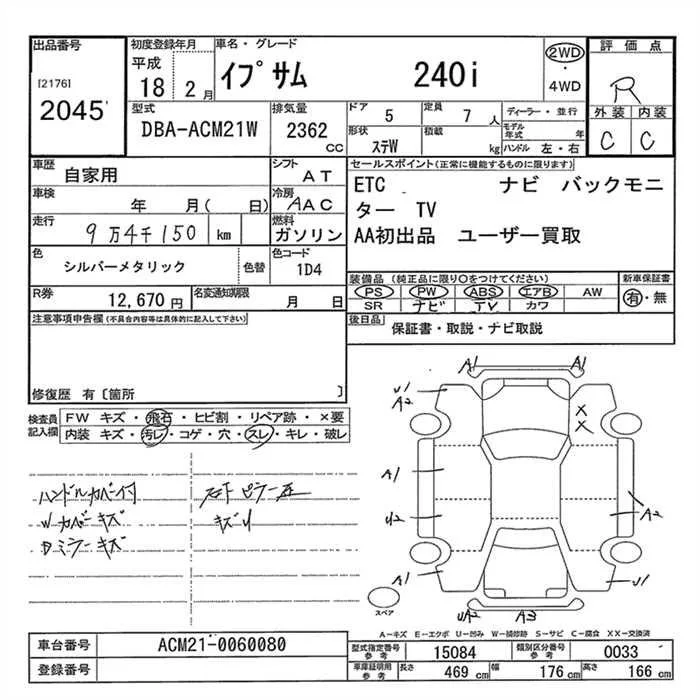 出品番号
[2176]
2045
初度登録年月
平成
18 2月
車名・グレード
イプサム 240i
2WD
・
4WD
評価点
R
外装 内装
C C
型式
DBA-ACM21W
排気量
2362
CC
ドア
5
定員
7 人
形状
ステW
積載
kg
ディーラー・並行
モデル
年式 年
ハンドル 左・右
車歴
自家用
シフト
AT
車検
年 月( 日)
冷房
AAC
走行
9万4千150 km
燃料
ガソリン
色
シルバーメタリック
色替
色コード
1D4
R券
12,670 円
名変通知期限
月 日
セールスポイント(正常に機能するものに限ります)
ETC ナビ バックモニ
ター TV
AA初出品 ユーザー買取
装備品(純正品に限り○をつけてください)
PS PW ABS エアB AW
SR ナビ TV カワ
新車保証書
有・無
後日品
保証書・取説・ナビ取説
注意事項申告欄(不具合内容等は具体的に記入して下さい)
修復歴 有〔箇所 〕
検査員
記入欄
FW キズ・飛石・ヒビ割・リペア跡・×要
内装 キズ・汚レ・コゲ・穴・スレ・キレ・破レ
ハンドルカバー付
Wカバーキズ
Dミラーキズ
キズU
A1 A1
U1
A2
X
X
A1
U2
A2
A1
U1
UA2 A3
スペア
A-キズ E-エクボ U-凹み W-補修跡 S-サビ C-腐食 XX-交換済
車台番号
ACM21-0060080
登録番号
型式指定番号
参考
15084
類別区分番号
参考
0033
車庫証明用
参考
長さ
469 cm
幅
176 cm
高さ
166 cm